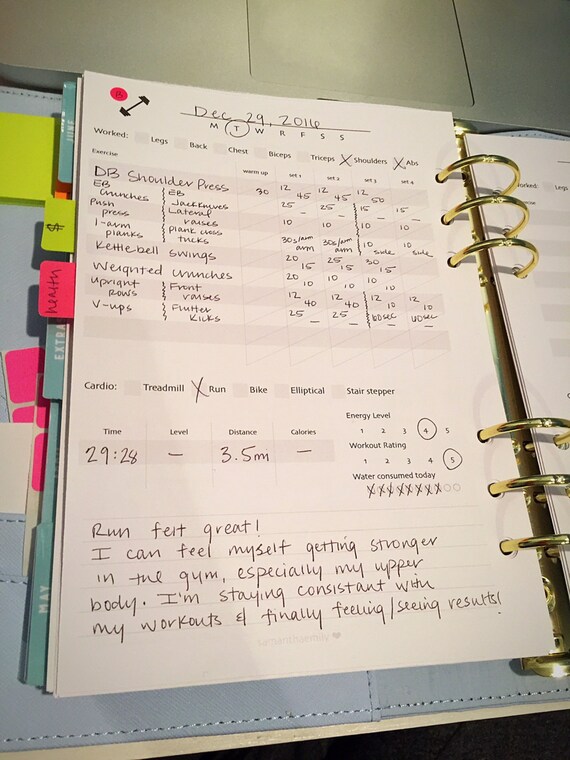 B
Dec 29, 2016
M T W R F S S
Worked: Legs Back Chest Biceps Triceps Shoulders Abs
Exercise warm up set 1 set 2 set 3 set 4
DB Shoulder Press 30 12 45 12 45 12 50
EB crunches EB Jackknives 25 – 25 – 15 – 15 –
Push press Lateral raises 10 10 10 10
1-arm planks plank cross tucks 30s/arm 30s/arm 10 side 10 side
Kettlebell swings 20 15 25 15 30 15
Weighted crunches 20 10 10 10
Upright Rows Front raises 12 40 12 40 12 10 12 10
V-ups Flutter Kicks 25 – 25 – 60sec – 60sec –
Cardio: Treadmill X Run Bike Elliptical Stair stepper
Energy Level
1 2 3 4 5
Time Level Distance Calories
29:28 – 3.5m –
Workout Rating
1 2 3 4 5
Water consumed today
Run felt great!
I can feel myself getting stronger
in the gym, especially my upper
body. I'm staying consistant with
my workouts & finally feeling/seeing results!
JUNE
$
health
EXTRA
MAY